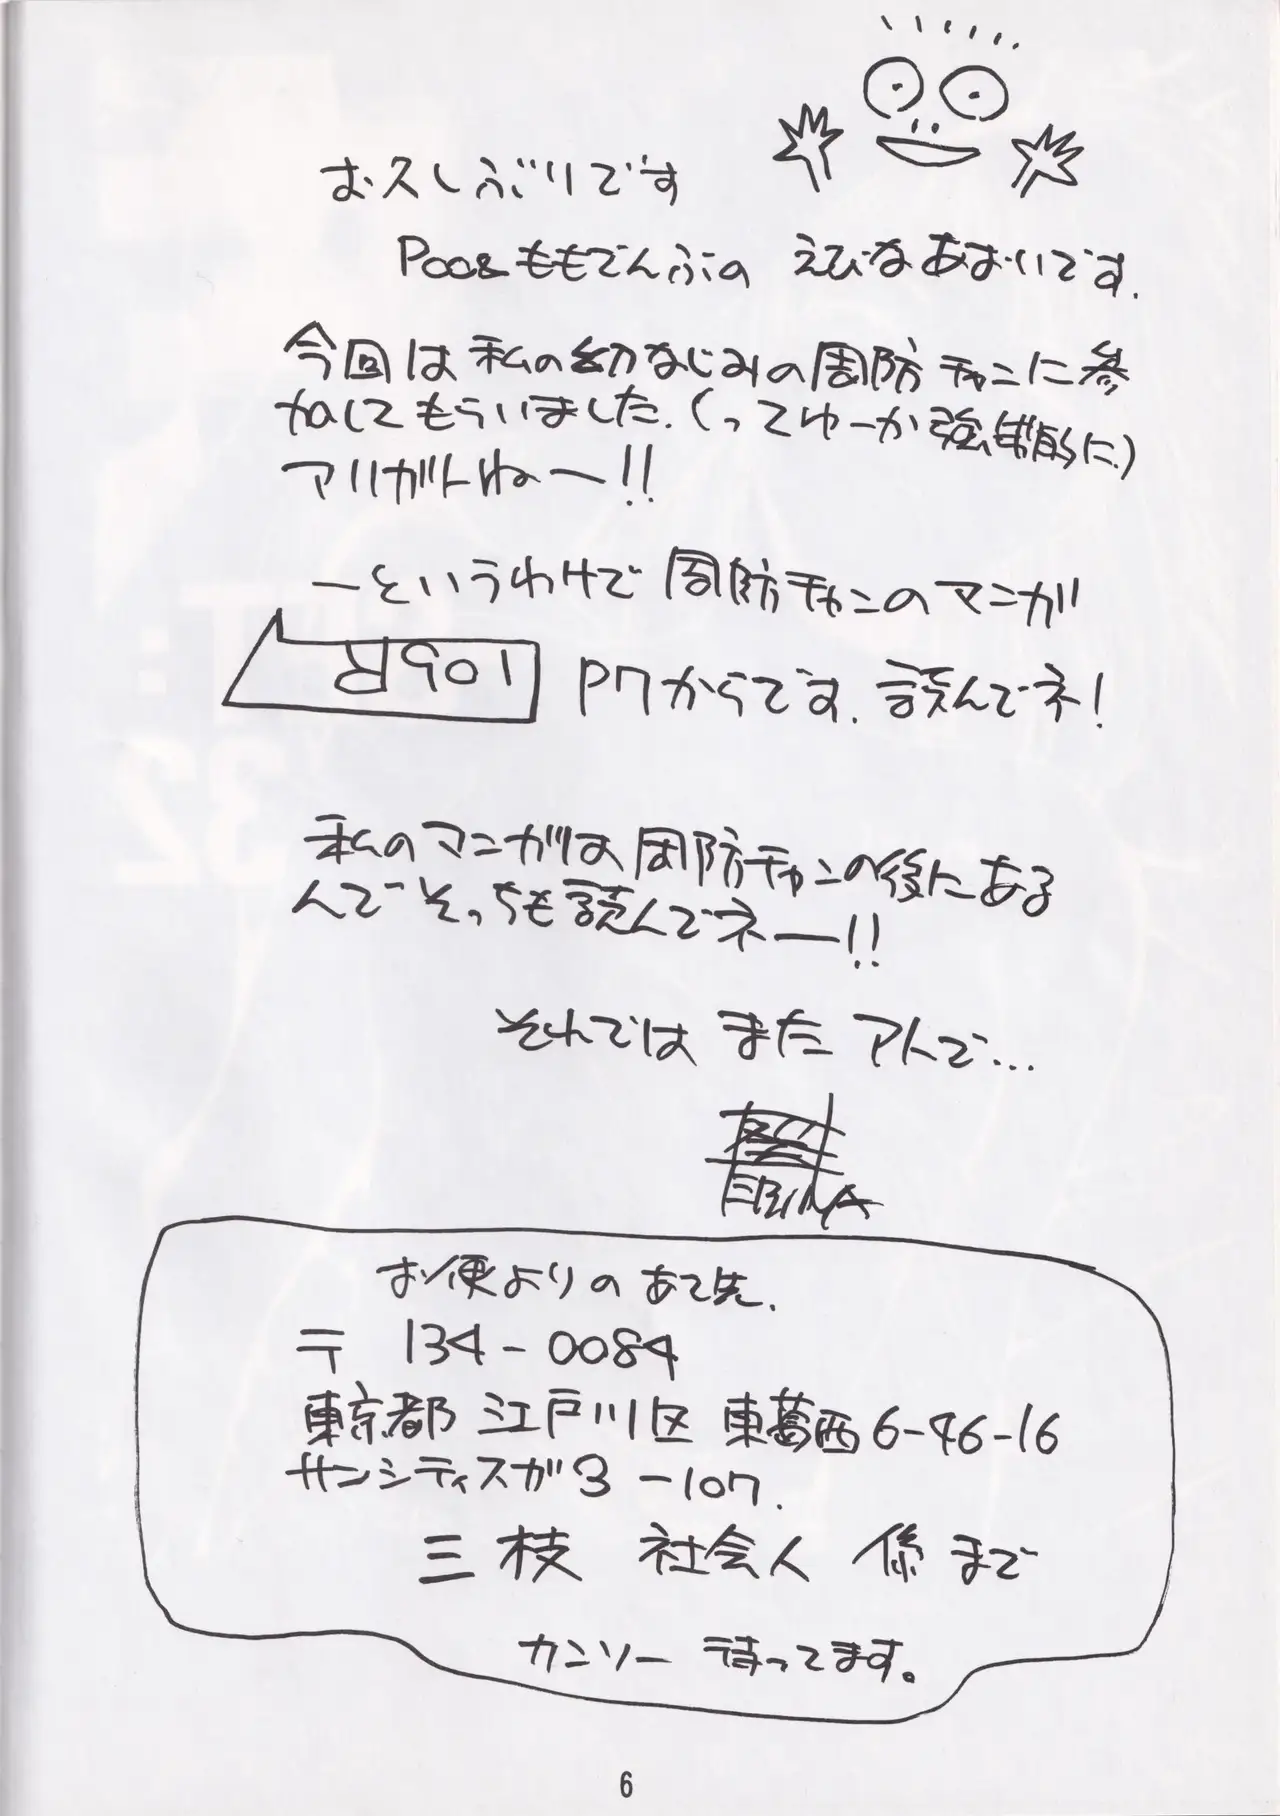 お久しぶりです
Poo&ももでんぶの えびなあおいです.
今回は私の幼なじみの周防チャンに参
加してもらいました.(ってゆーか強制的に)
アリガトねー!!
―というわけで周防チャンのマンガ
P7からです.読んでネ!
私のマンガは周防チャンの後にある
んでそっちも読んでネー!!
それでは また アトで…
EBINA
お便よりのあて先.
〒 134-0084
東京都 江戸川区 東葛西6-46-16
サンシティスガ3 -107.
三枝 社会人 係まで
カンソー 待ってます。
6